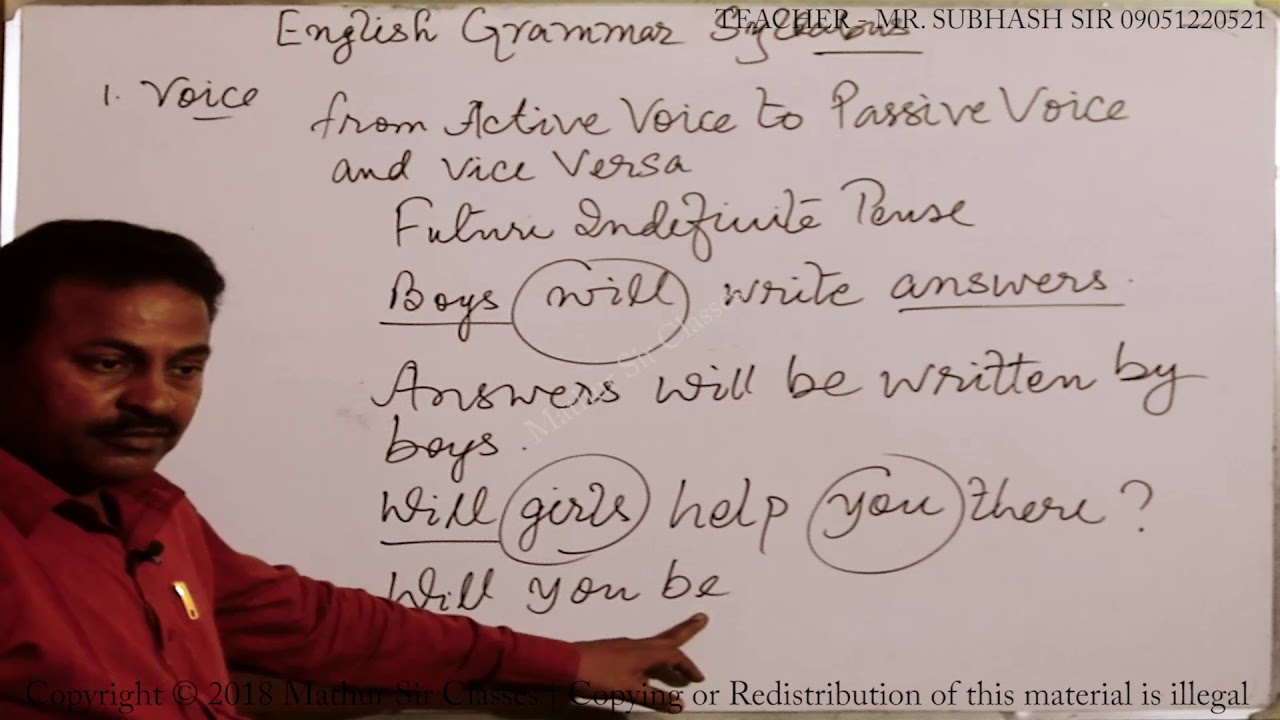 TEACHER - MR. SUBHASH SIR 09051220521
English Grammar
1. Voice
from Active Voice to Passive Voice
and Vice Versa
Future Indefinite Tense
Boys will write answers.
Answers will be written by
boys.
Will girls help you there?
Will you be
Mathur Sir Classes
Copyright © 2018 Mathur Sir Classes | Copying or Redistribution of this material is illegal